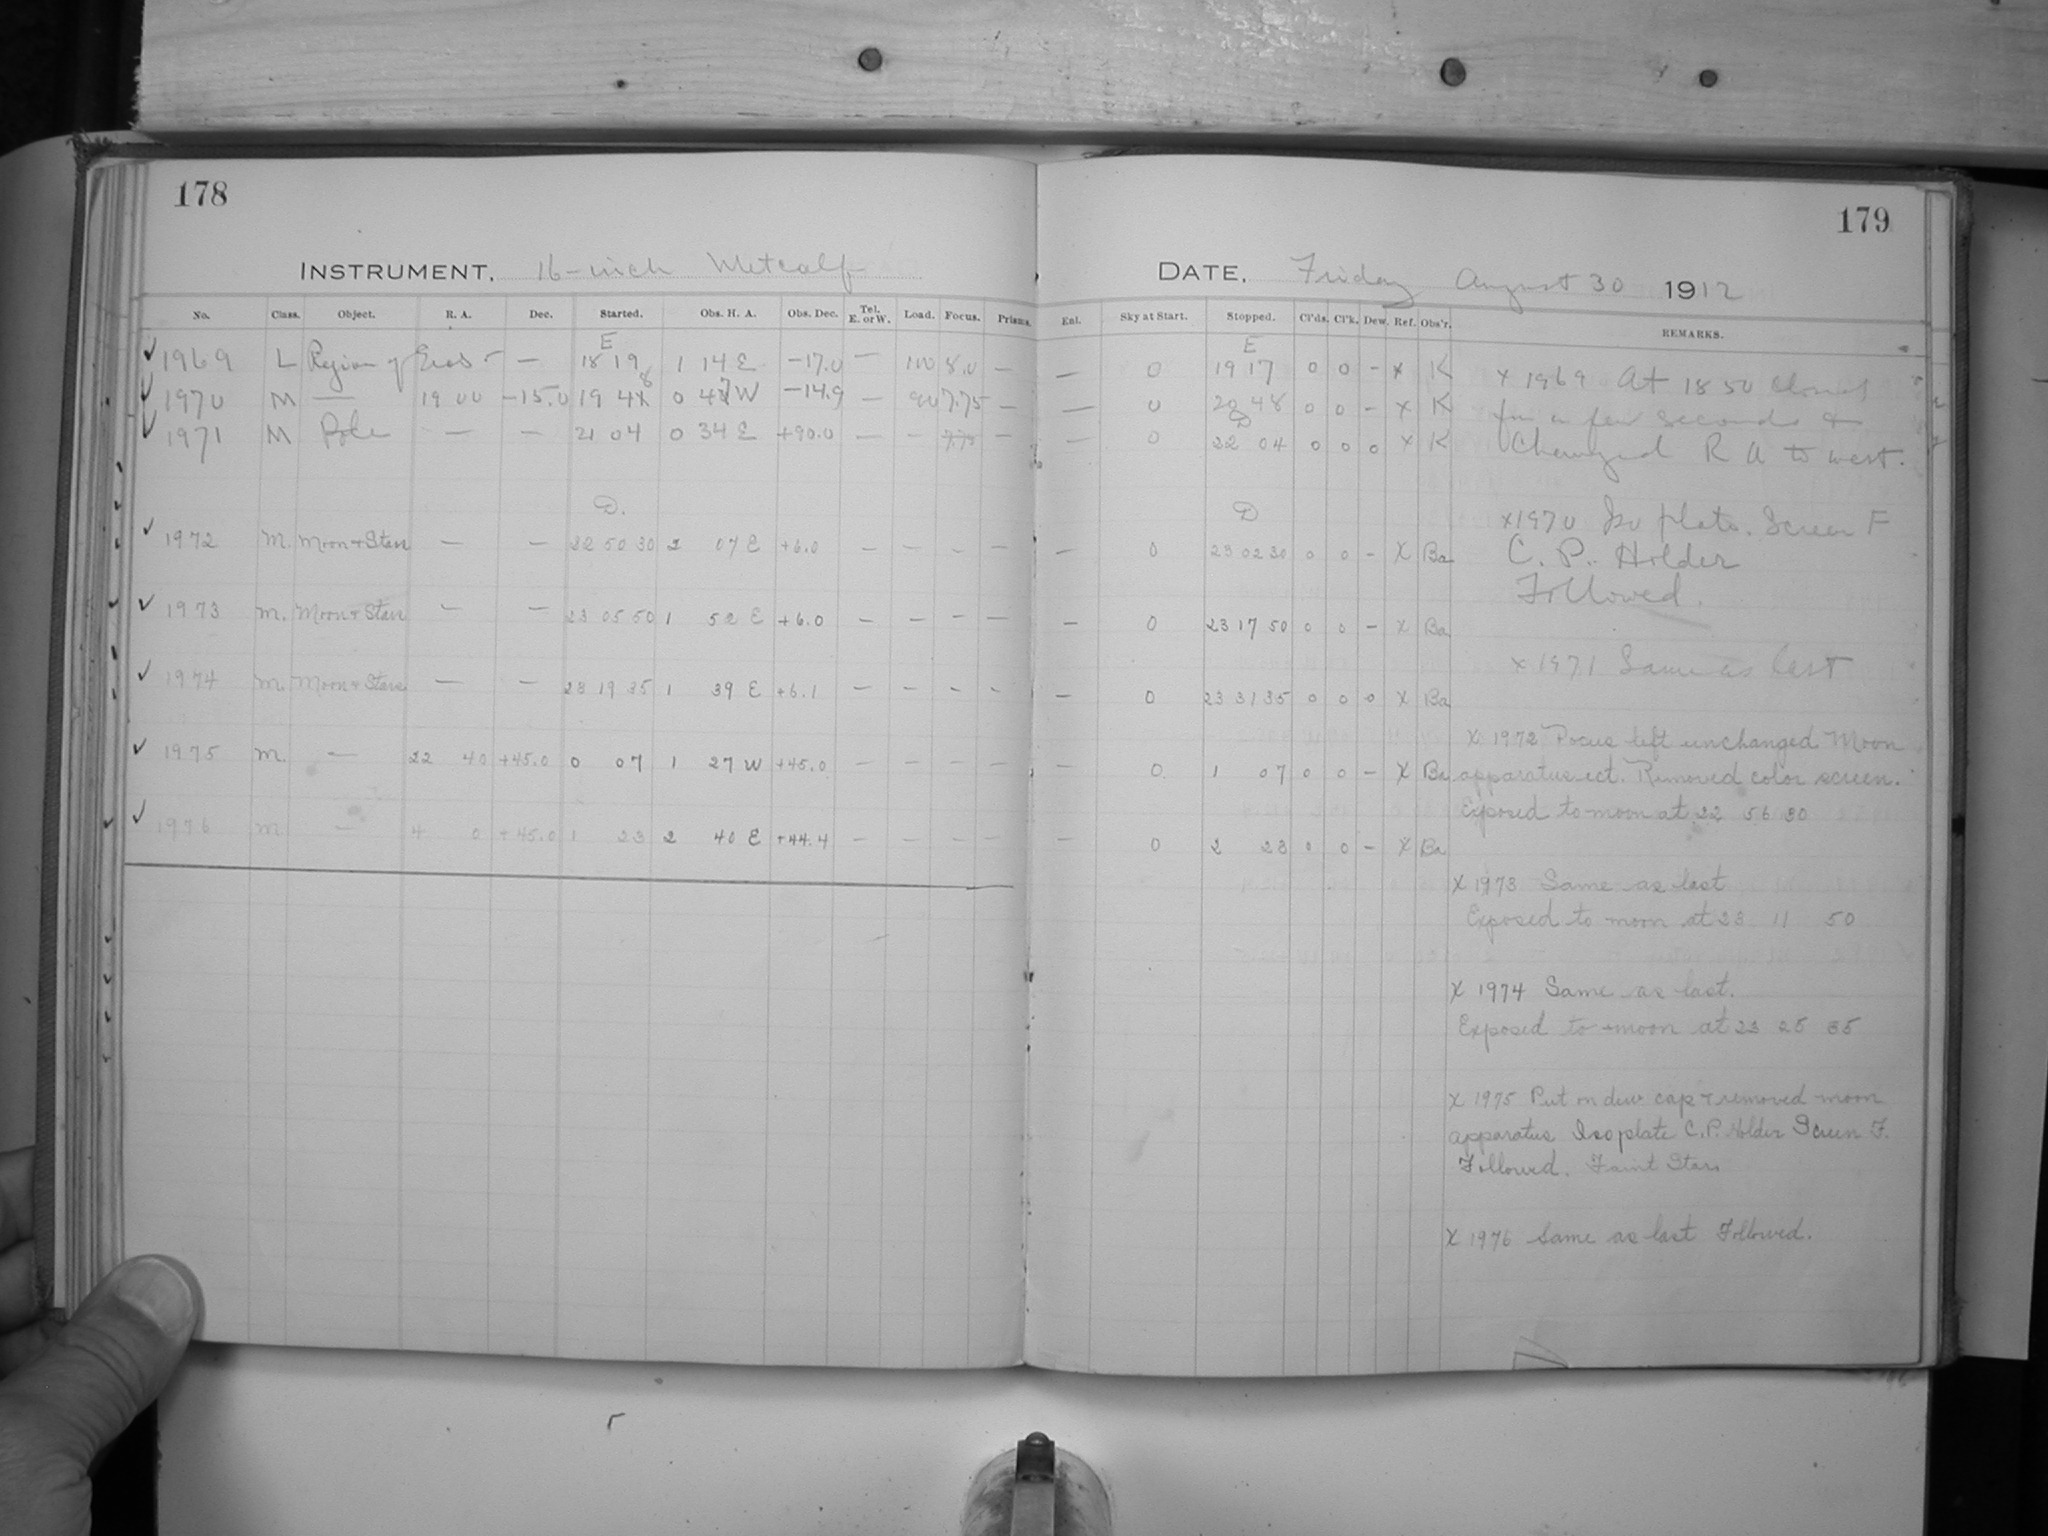 178
INSTRUMENT. 16-inch Metcalf
No. Class. Object. R. A. Dec. Started. Obs. H. A. Obs. Dec. Tel. E. or W. Load. Focus. Prisms.
E
1969 L Region of Eros — 18 19 1 14 E −17.0 — 100 8.0 —
1970 M — 19 00 −15.0 19 48 0 47 W −14.9 — 90 7.75 —
1971 M Pole — — 21 04 0 34 E +90.0 — — 7.75 —
D.
1972 M. Moon + Stars — — 22 50 30 2 07 E +6.0 — — — —
1973 M. Moon + Stars — — 23 05 50 1 52 E +6.0 — — — —
1974 M. Moon + Stars — — 23 19 35 1 39 E +6.1 — — — —
1975 M. — 22 40 +45.0 0 07 1 27 W +45.0 — — — —
1976 M — 4 0 +45.0 1 23 2 40 E +44.4 — — — —
179
DATE. Friday August 30 1912
Enl. Sky at Start. Stopped. Cl'ds. Cl'k. Dew. Ref. Obs'r. REMARKS.
E
— 0 19 17 0 0 – x K
— 0 20 48 0 0 – x K
D
— 0 22 04 0 0 0 x K
D
— 0 23 02 30 0 0 – X Ba
— 0 23 17 50 0 0 – X Ba
— 0 23 31 35 0 0 0 X Ba
— 0 1 07 0 0 – X Ba
— 0 2 23 0 0 – X Ba
x 1969 At 18 50 closed
for a few seconds &
Changed R A to west.
x 1970 Iso plate. Screen F
C. P. Holder
Followed.
x 1971 Same as last
X 1972 Focus left unchanged Moon
apparatus ect. Removed color screen.
Exposed to moon at 22 56 30
X 1973 Same as last
Exposed to moon at 23 11 50
X 1974 Same as last.
Exposed to moon at 23 25 35
X 1975 Put on dew cap + removed moon
apparatus Iso plate C. P. Holder Screen F.
Followed. Faint Stars
X 1976 Same as last Followed.